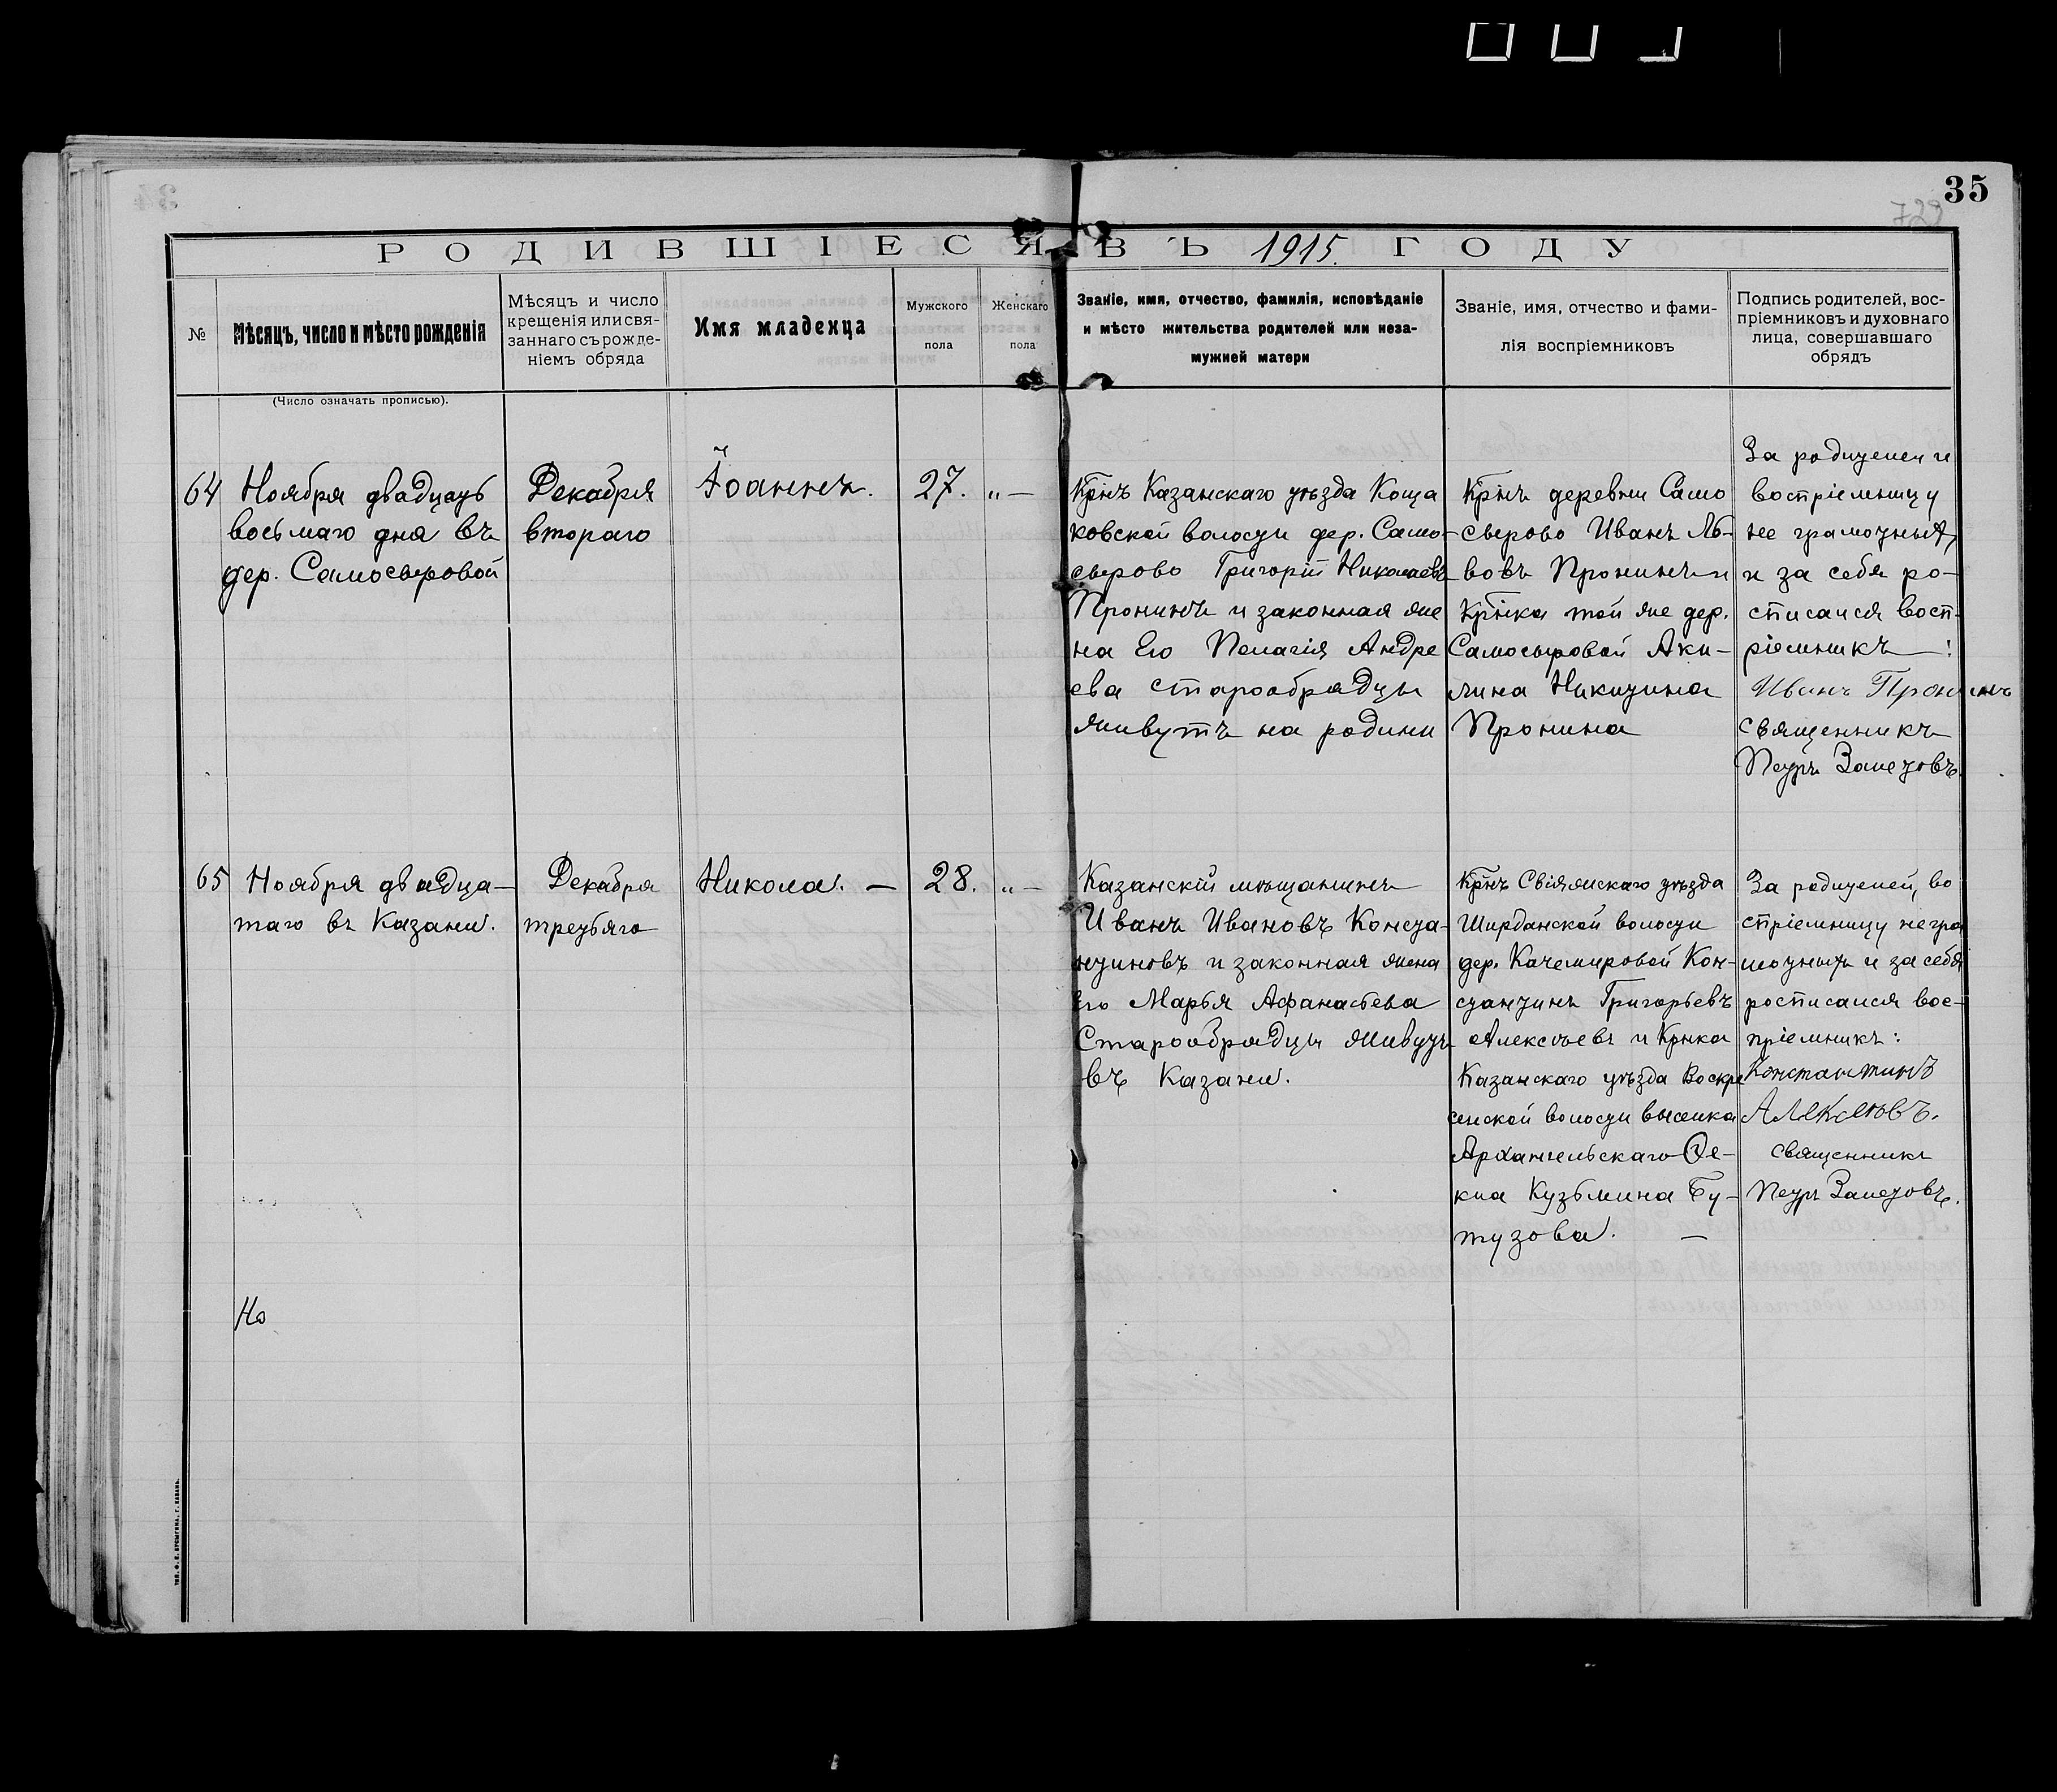 35
729
РОДИВШІЕСЯ ВЪ 1915 ГОДУ
№
Мѣсяцъ, число и мѣсто рожденія
Мѣсяцъ и число
крещенія или свя-
заннаго съ рожде-
ніемъ обряда
Имя младенца
Мужского
пола
Женскаго
пола
Званіе, имя, отчество, фамилія, исповѣданіе
и мѣсто жительства родителей или неза-
мужней матери
Званіе, имя, отчество и фами-
лія воспріемниковъ
Подпись родителей, вос-
пріемниковъ и духовнаго
лица, совершавшаго
обрядъ
(Число означать прописью).
64
Ноября двадцать
восьмаго дня въ
дер. Самосыровой
Декабря
втораго
Іоаннъ.
27.
„ —
Крнъ Казанскаго уѣзда Коща
ковской волости дер. Само-
сырово Григорій Николаевъ
Пронинъ и законная же
на Его Пелагія Андре
ева старообрядцы
живутъ на родини
Крнъ деревни Само
сырово Иванъ Ль-
вовъ Пронинъ и
Крнка той же дер.
Самосыровой Аки-
лина Никитина
Пронина
За родителей и
воспріемницу
не грамотныхъ,
и за себя ро-
списался восп-
ріемникъ :
Иванъ Пронинъ
священникъ
Петръ Залетовъ.
65
Ноября двадца-
таго въ Казани.
Декабря
третьяго
Никола. —
28.
„ —
Казанскій мѣщанинъ
Иванъ Ивановъ Конста-
нтиновъ и законная жена
Его Марья Афанасьева
Старообрядцы живутъ
въ Казани.
Крнъ Свіяжскаго уѣзда
Ширданской волости
дер. Качемировой Кон-
стантинъ Григорьевъ
Алексѣевъ и Крнка
Казанскаго уѣзда Воскре
сенской волости выселка
Архангельскаго Ѳе-
кла Кузьмина Бу-
тузова. —
За родителей, во
спріемницу негра
мотныхъ и за себя
росписался вос-
пріемникъ:
Константинъ
Алексѣевъ.
священникъ
Петръ Залетовъ.
Но
Тип. Ф. П. Брызгина, г. Казань.